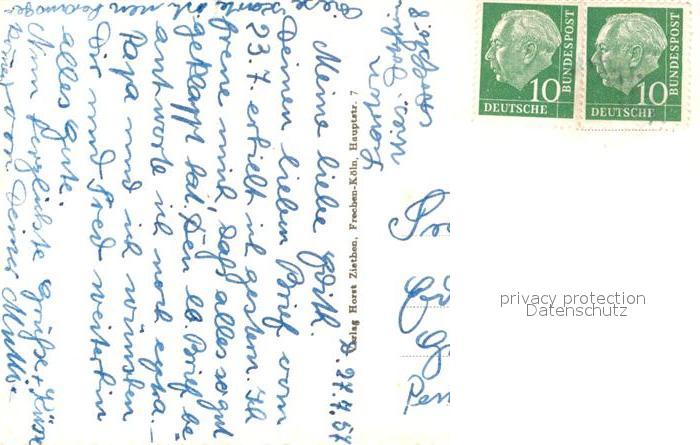 Diese Karte ist nur
B. 27.7.57
Meine liebe Edith.
Deinen lieben Brief vom
23.7. erhielt ich gestern. Ich
freue mich, daß alles so gut
geklappt hat. Den lb. Brief be-
antworte ich noch extra. –
Papa und ich wünschen
Dir und Fred weiterhin
alles Gute.
Nun herzlichste Grüße + Küsse
von Deiner Mutti.
Verlag Horst Ziethen, Frechen-Köln, Hauptstr. 7
10
DEUTSCHE
BUNDESPOST
10
DEUTSCHE
BUNDESPOST
privacy protection
Datenschutz